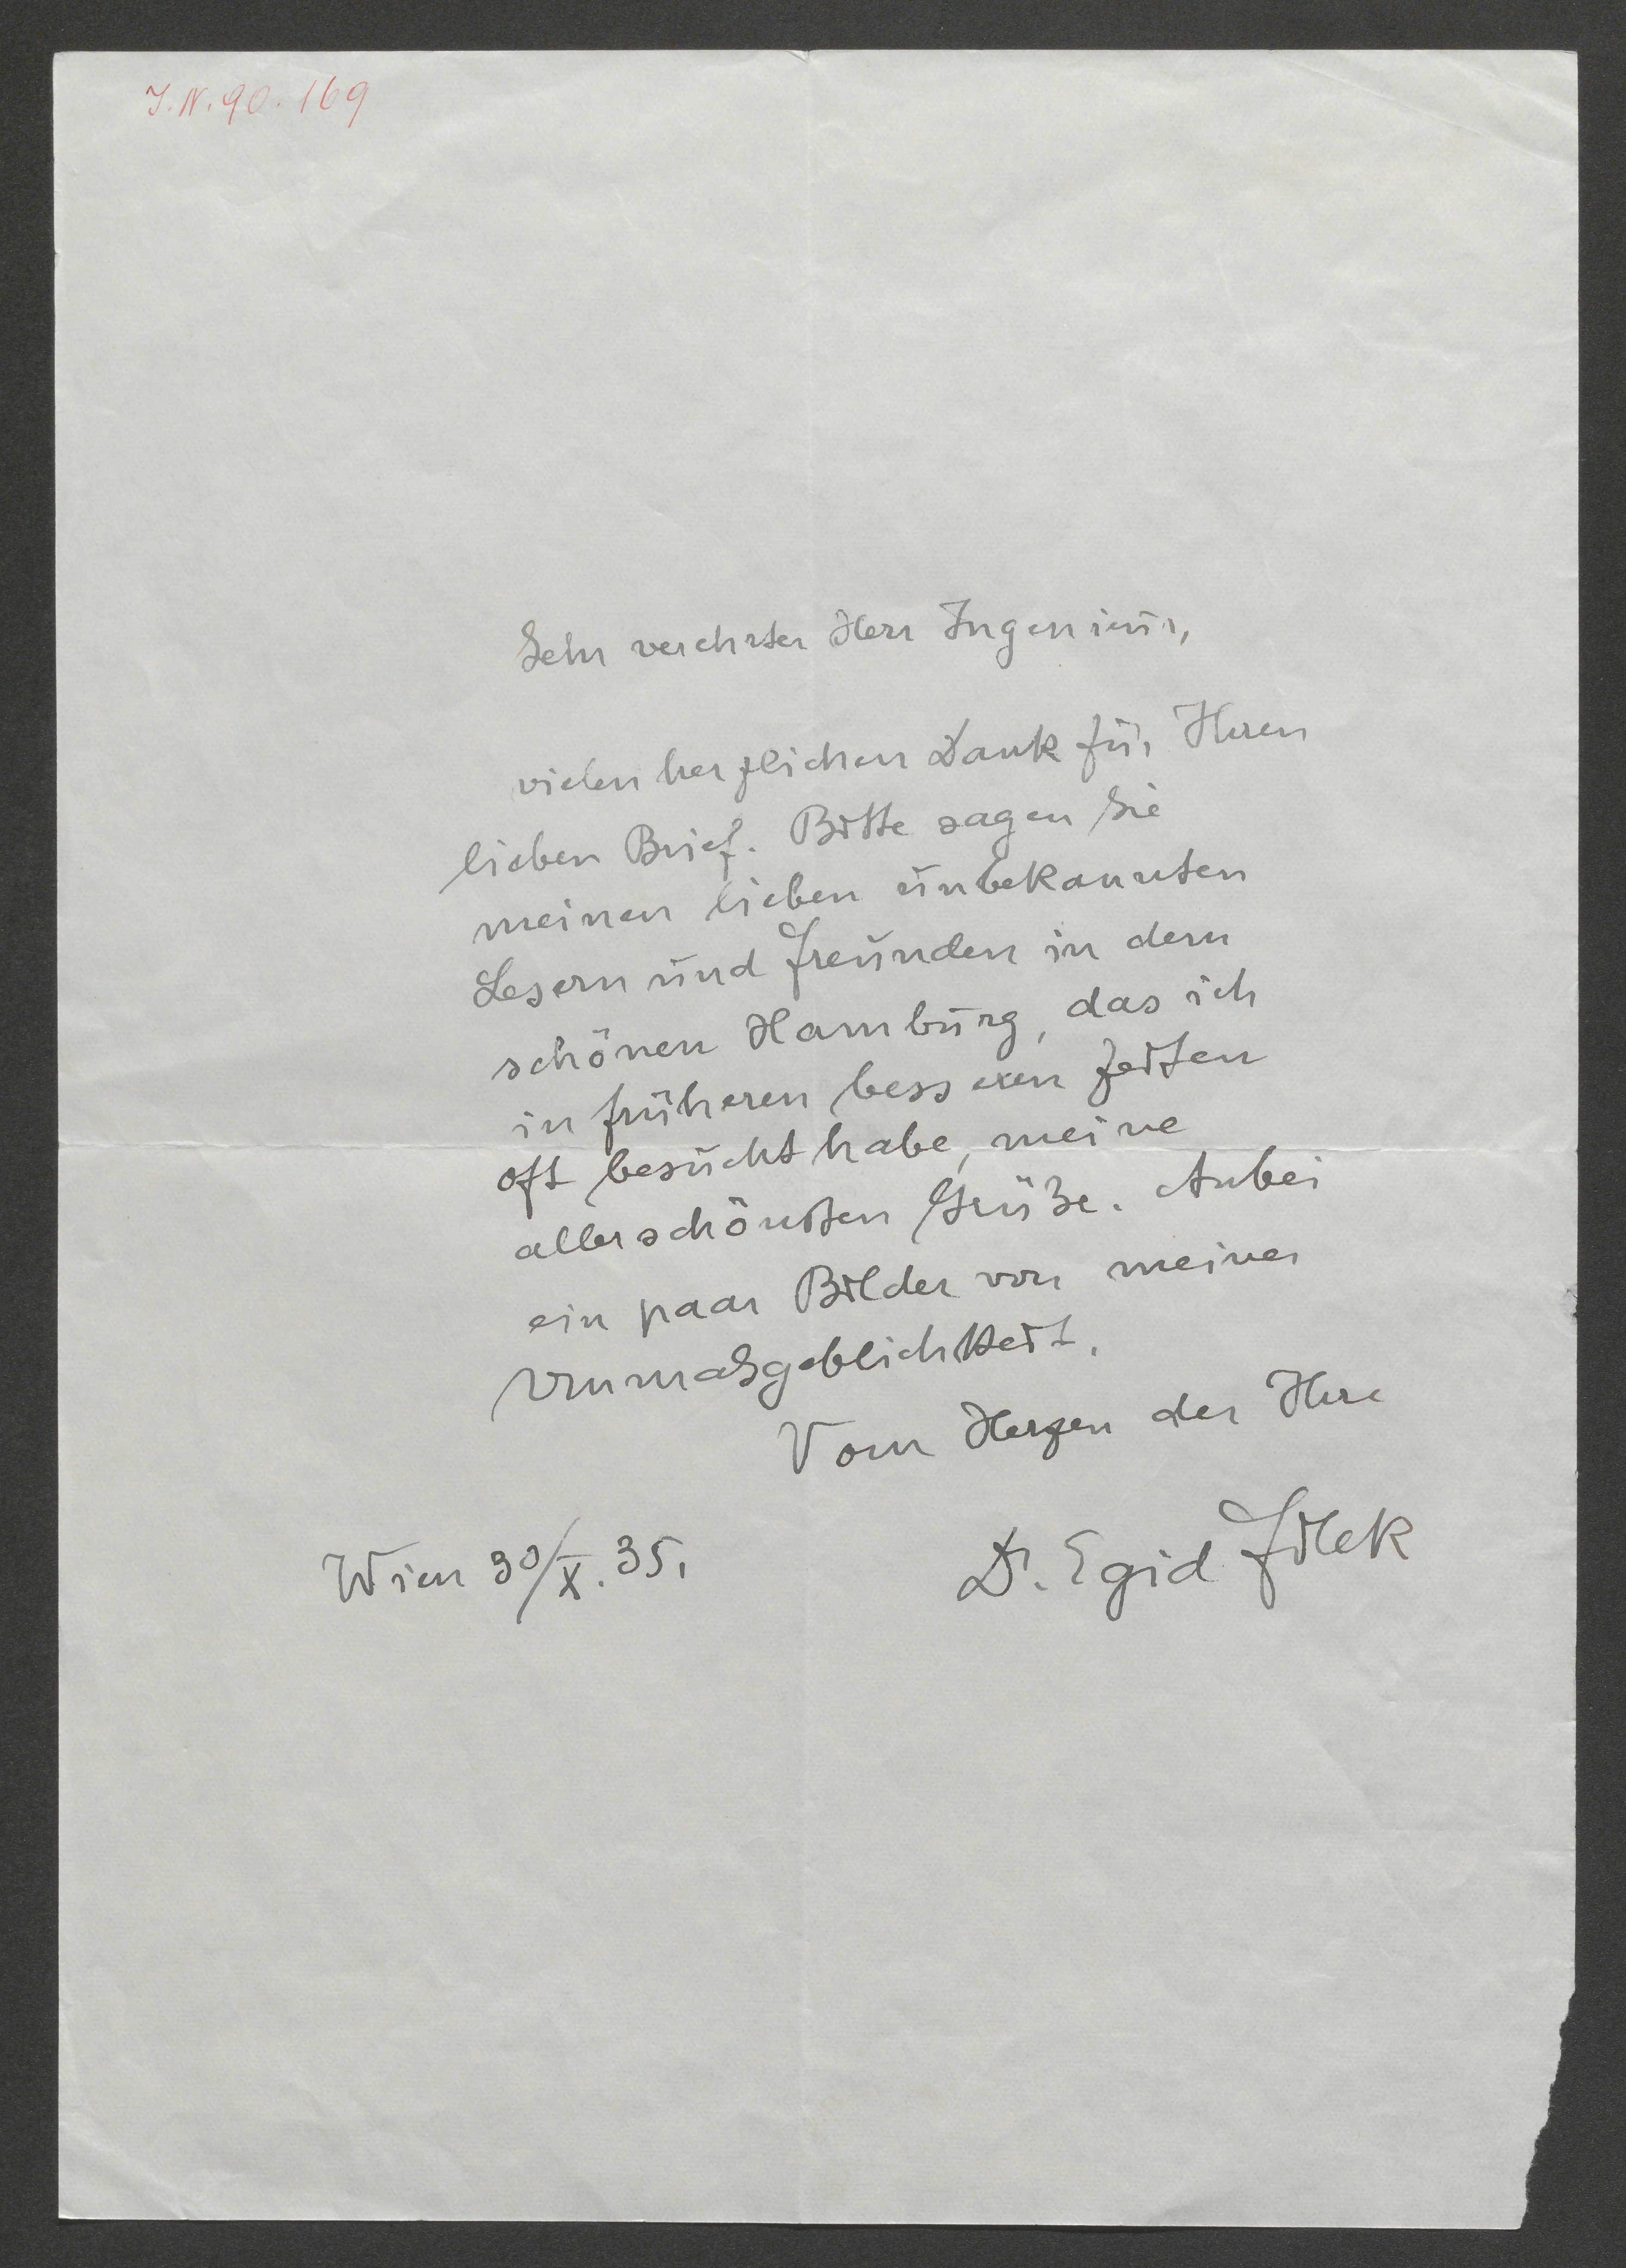 J.N. 90.169
Sehr verehrter Herr Ingenieur,
vielen herzlichen Dank für Ihren
lieben Brief. Bitte sagen Sie
meinen lieben unbekannten
Lesern und Freunden in dem
schönen Hamburg, das ich
in früheren besseren Zeiten
oft besucht habe, meine
allerschönsten Grüße. Anbei
ein paar Bilder von meiner
Unmaßgeblichkeit.
Vom Herzen der Ihre
Dr. Egid Filek
Wien 30/X. 35.